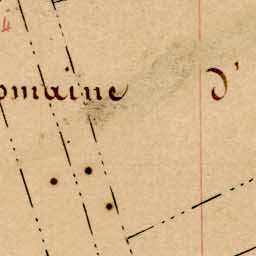 4
omaine d'